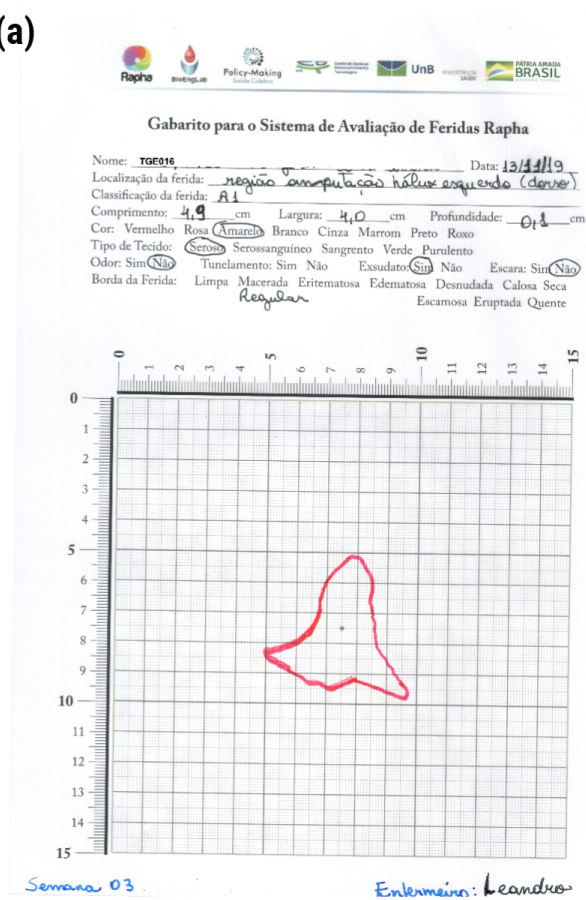 (a)
Rapha
BioEngLab
Policy-Making
Saúde Coletiva
UnB
MINISTÉRIO DA SAÚDE
PÁTRIA AMADA
BRASIL
Gabarito para o Sistema de Avaliação de Feridas Rapha
Nome: TGE016 Data: 13/11/19
Localização da ferida: região amputação hálux esquerdo (dorso)
Classificação da ferida: A1
Comprimento: 4,9 cm Largura: 4,0 cm Profundidade: 0,1 cm
Cor: Vermelho Rosa Amarelo Branco Cinza Marrom Preto Roxo
Tipo de Tecido: Seroso Serossanguíneo Sangrento Verde Purulento
Odor: Sim Não Tunelamento: Sim Não Exsudato: Sim Não Escara: Sim Não
Borda da Ferida: Limpa Macerada Eritematosa Edematosa Desnudada Calosa Seca
Regular Escamosa Eruptada Quente
0 1 2 3 4 5 6 7 8 9 10 11 12 13 14 15
0
1
2
3
4
5
6
7
8
9
10
11
12
13
14
15
Semana 03. Enfermeiro: Leandro